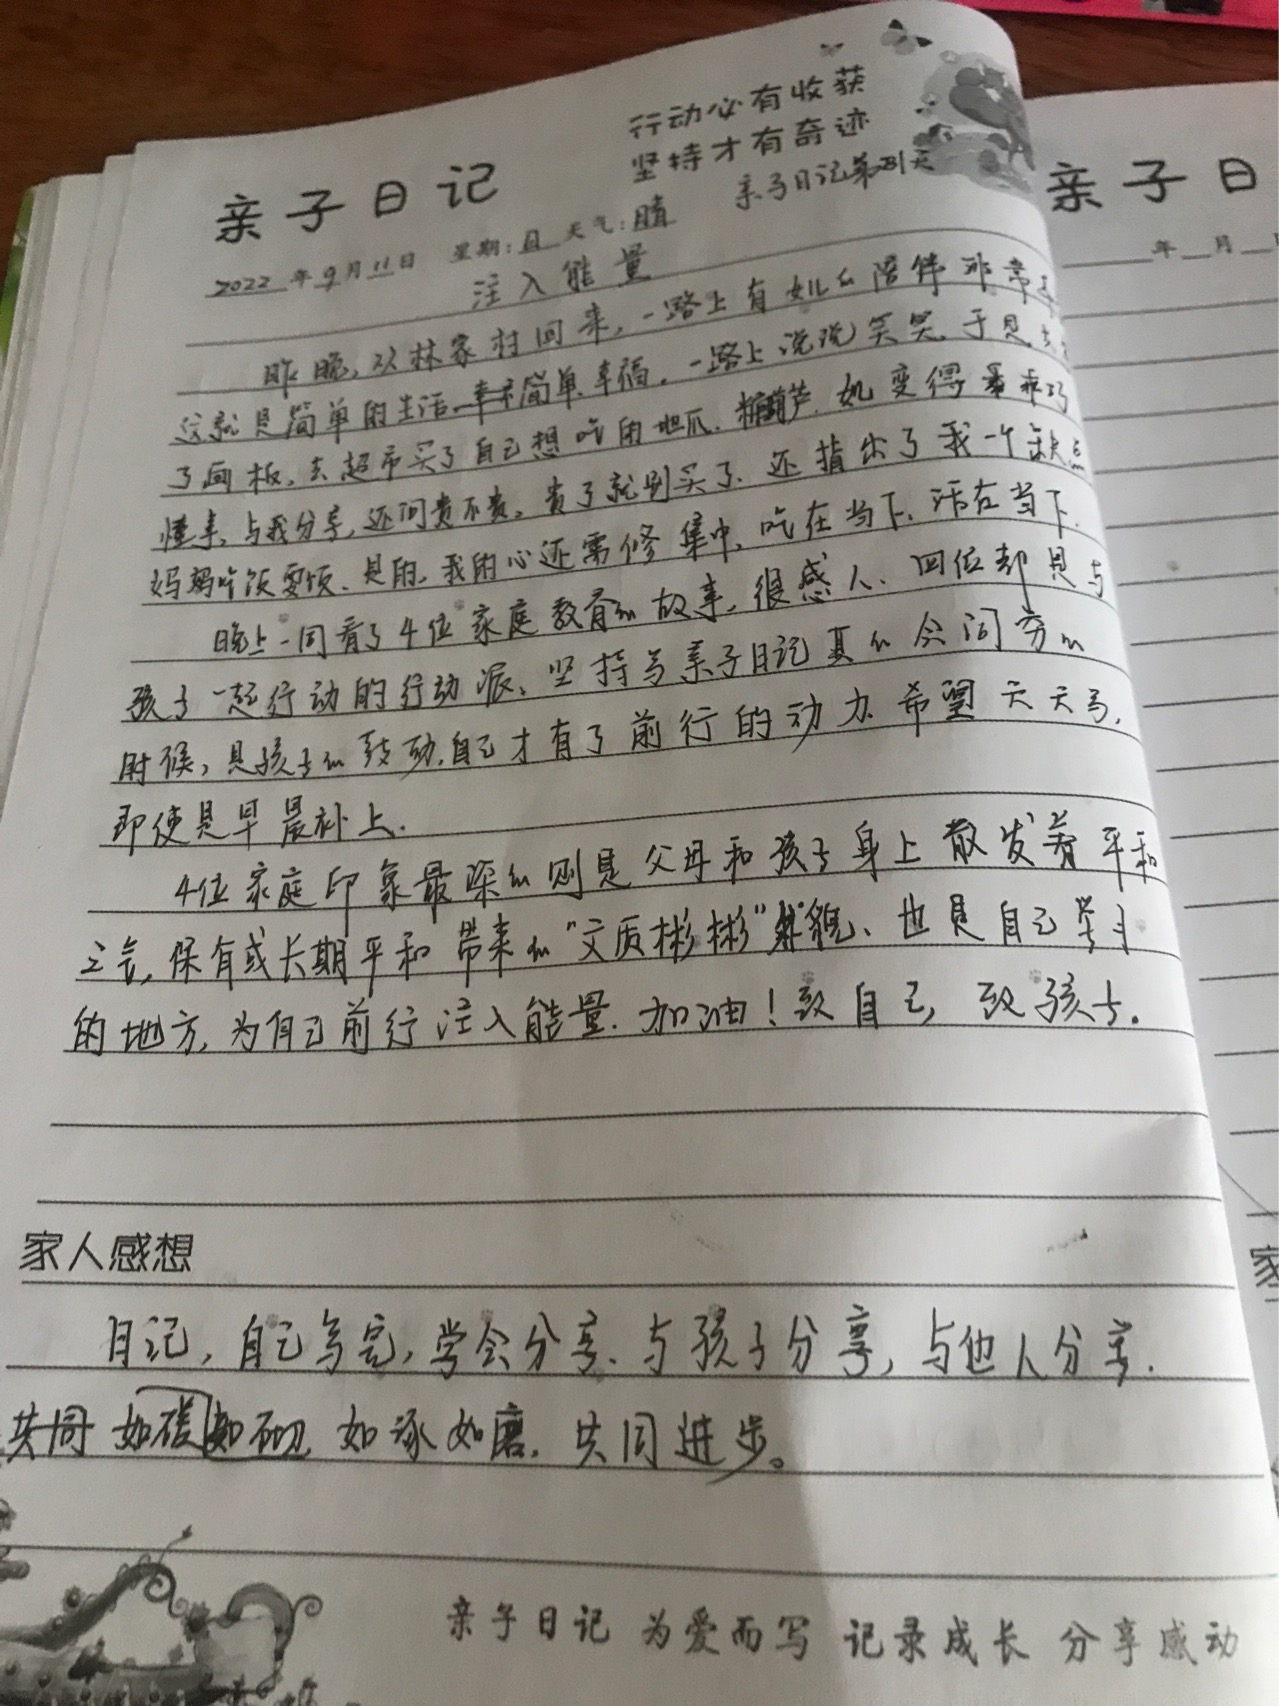 行动必有收获
坚持才有奇迹
亲子日记 亲子日记第281天
2022年9月11日 星期:日 天气:晴
注入能量
昨晚,从林家村回来,一路上有她的陪伴非常
这就是简单的生活,简单幸福。一路上说说笑笑,于是
了画板,去超市买了自己想吃的地瓜、糖葫芦.她变得乖巧
懂事,与我分享,还问贵不贵。贵了就别买了.还指出了我一个缺点
妈妈吃饭要快、是的,我的心还需修集中,吃在当下,活在当下.
晚上一同看了4位家庭教育的故事,很感人、四位都是与
孩子一起行动的行动派,坚持写亲子日记真的会词穷的
时候,是孩子的鼓动,自己才有了前行的动力.希望天天写,
即使是早晨补上.
4位家庭印象最深的则是父母和孩子身上散发着平和
之气,保有或长期平和带来的“文质彬彬”貌、也是自己学习
的地方,为自己前行注入能量.加油!致自己,致孩子.
家人感想
日记,自己写完,学会分享.与孩子分享,与他人分享.
共同如切如磋,如琢如磨.共同进步。
亲子日记 为爱而写 记录成长 分享感动
亲子日
年 月
家